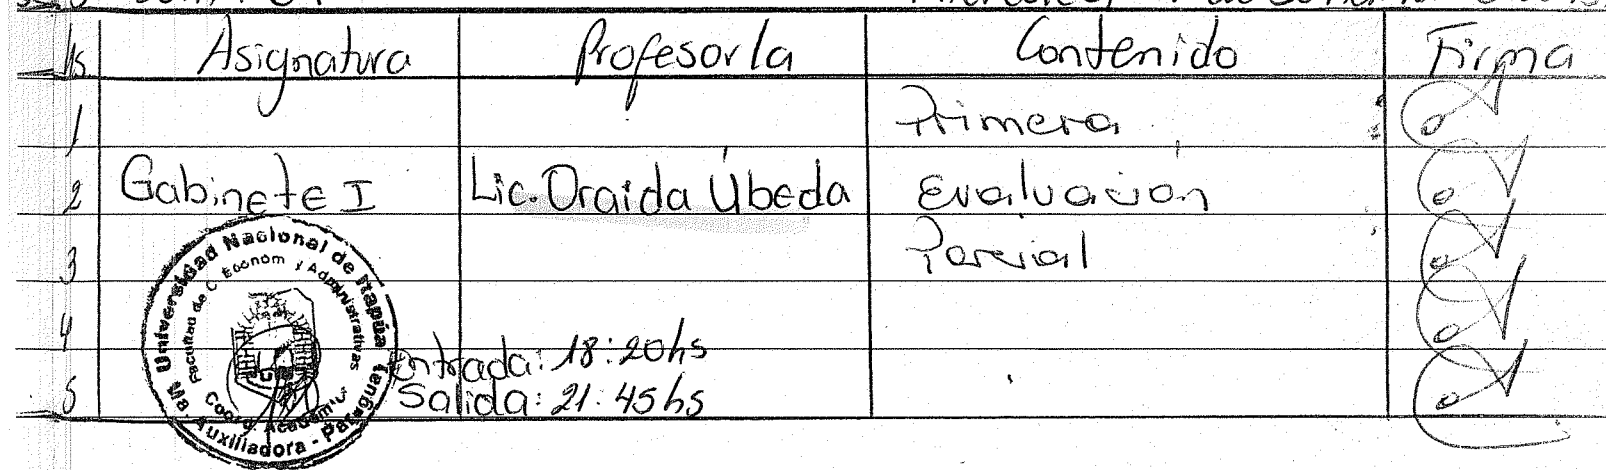 Hs. Asignatura Profesor/a Contenido Firma
1 Primera
2 Gabinete I Lic. Oraida Úbeda Evaluación
3 Parcial
4
Entrada: 18:20hs
5 Salida: 21:45hs
Universidad Nacional de Itapúa
Facultad de C. Econom y Administrativas
Coord. Académic
Ma. Auxiliadora - Paraguay